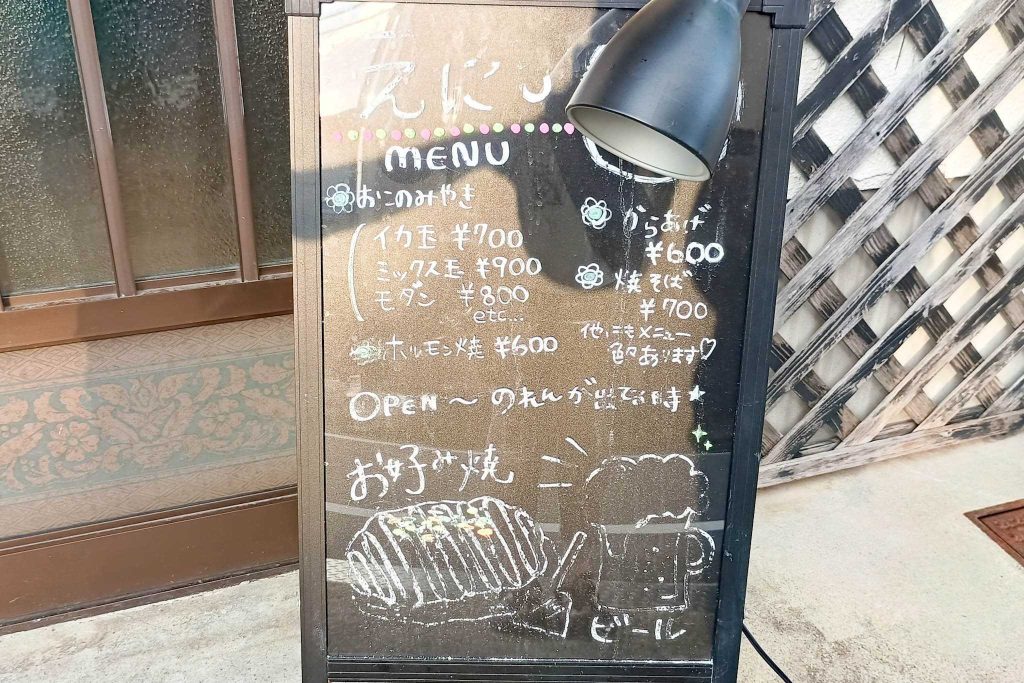 えにし
MENU
おこのみやき
イカ玉 ¥700
ミックス玉 ¥900
モダン ¥800
etc...
ホルモン焼 ¥600
からあげ
¥600
焼そば
¥700
他にもメニュー
色々あります♡
OPEN 〜 のれんが出てる時★
お好み焼
ビール